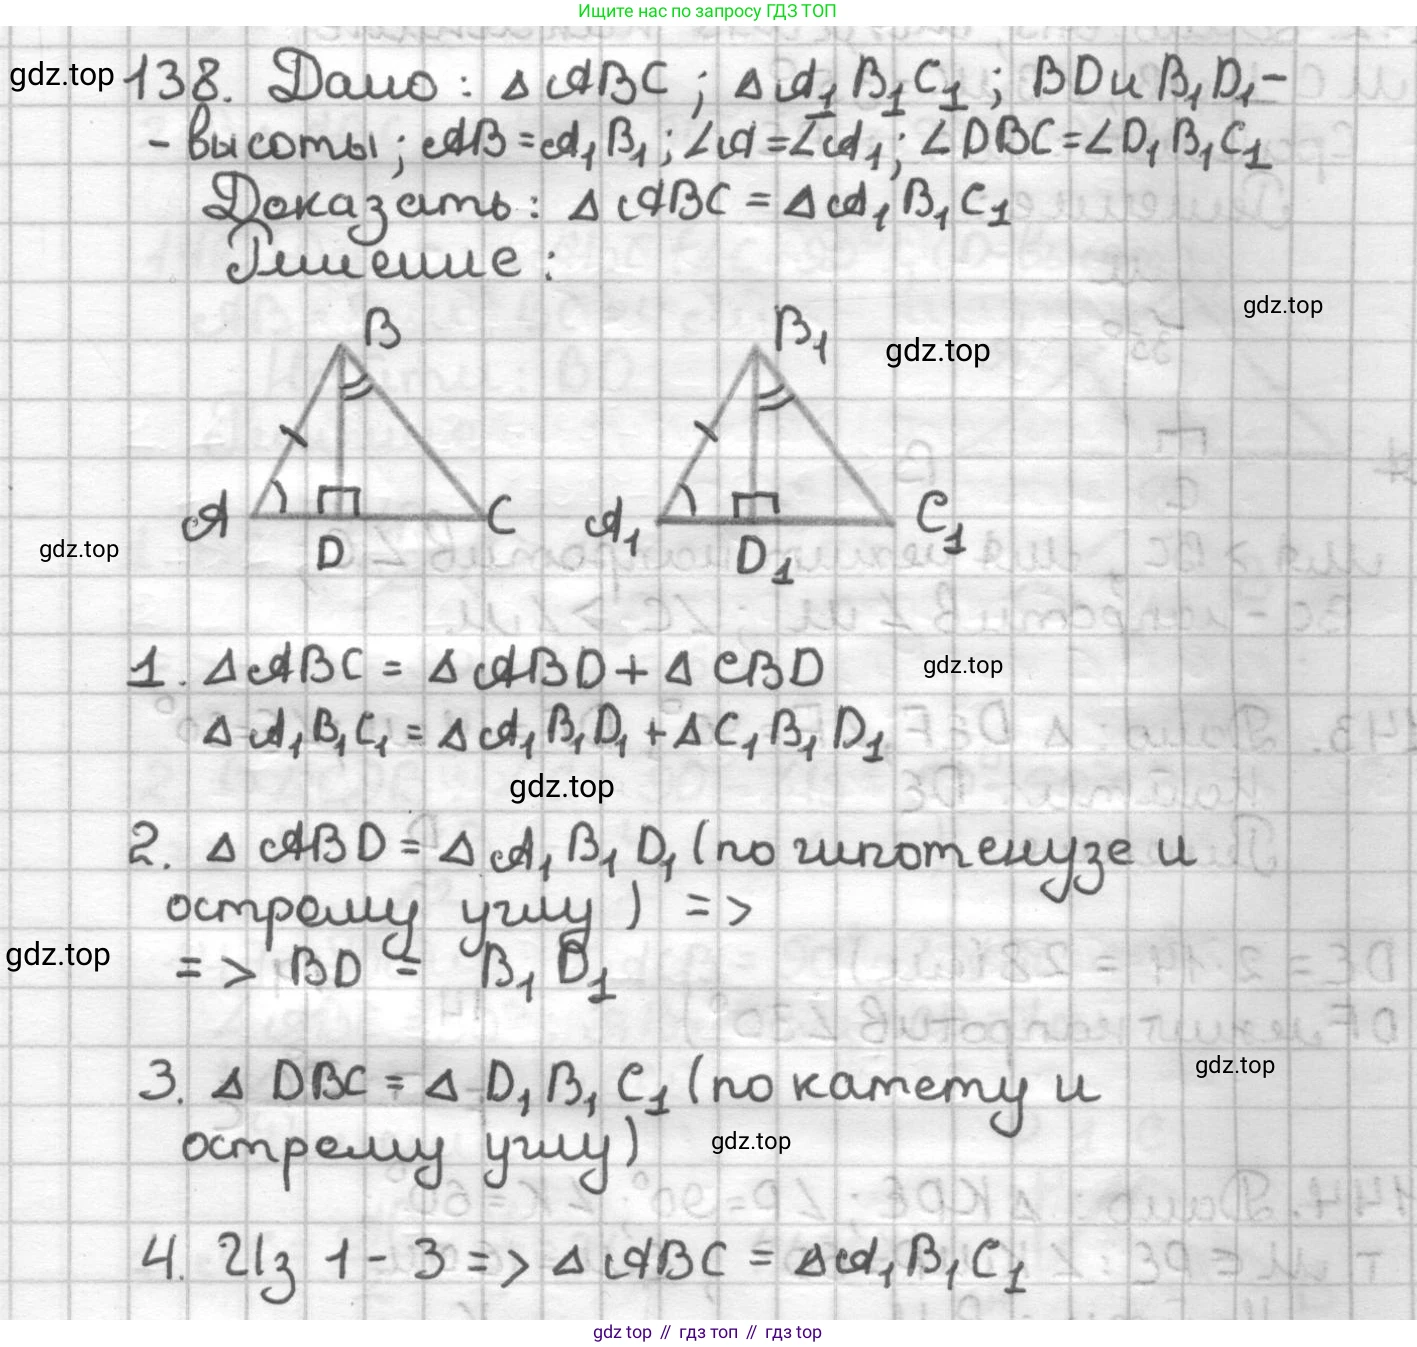 Ищите нас по запросу ГДЗ ТОП
gdz.top 138. Дано: Δ ABC; Δ A₁B₁C₁; BD и B₁D₁-
- высоты; AB = A₁B₁; ∠A = ∠A₁; ∠DBC = ∠D₁B₁C₁
Доказать: Δ ABC = Δ A₁B₁C₁
Решение:
gdz.top
B B₁ gdz.top
A C A₁ C₁
gdz.top D D₁
1. Δ ABC = Δ ABD + Δ CBD gdz.top
Δ A₁B₁C₁ = Δ A₁B₁D₁ + Δ C₁B₁D₁
gdz.top
2. Δ ABD = Δ A₁B₁D₁ (по гипотенузе и
острому углу) =>
gdz.top => BD = B₁D₁
gdz.top
3. Δ DBC = Δ D₁B₁C₁ (по катету и
острому углу) gdz.top
4. Из 1 - 3 => Δ ABC = Δ A₁B₁C₁
gdz top // гдз топ // гdз top